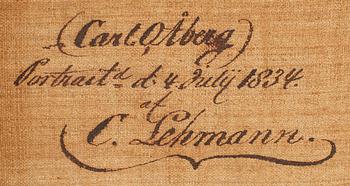 (Carl O, Åberg)
Portrait.d d. 4 Julij 1834.
af
C. Lehmann.